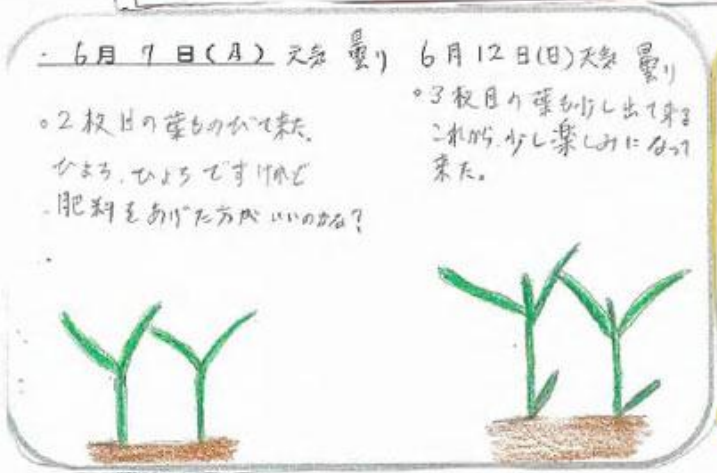 ・6月7日(月) 天気 曇り
。2枚目の葉ものびて来た。
ひょろ、ひょろですけれど
肥料をあげた方がいいのかな?
6月12日(日)天気 曇り
。3枚目の葉も少し出て来る
これから、少し楽しみになって
来た。